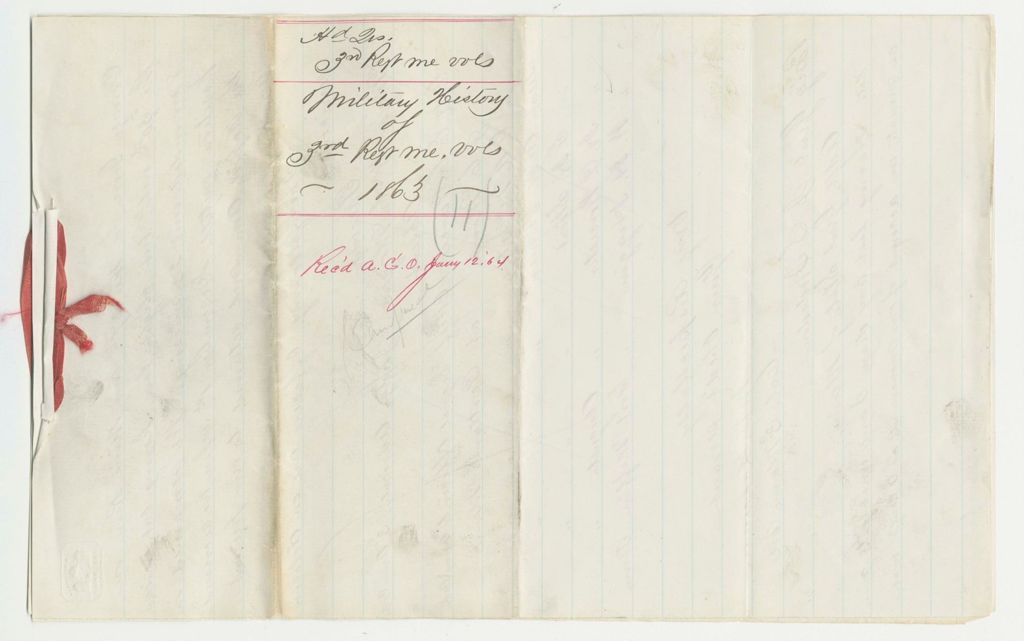 Hd Qrs.
3rd Regt me vols
Military History
of
3rd Regt me. vols
1863
(11)
Rec'd A.G.O. Jany 12.64